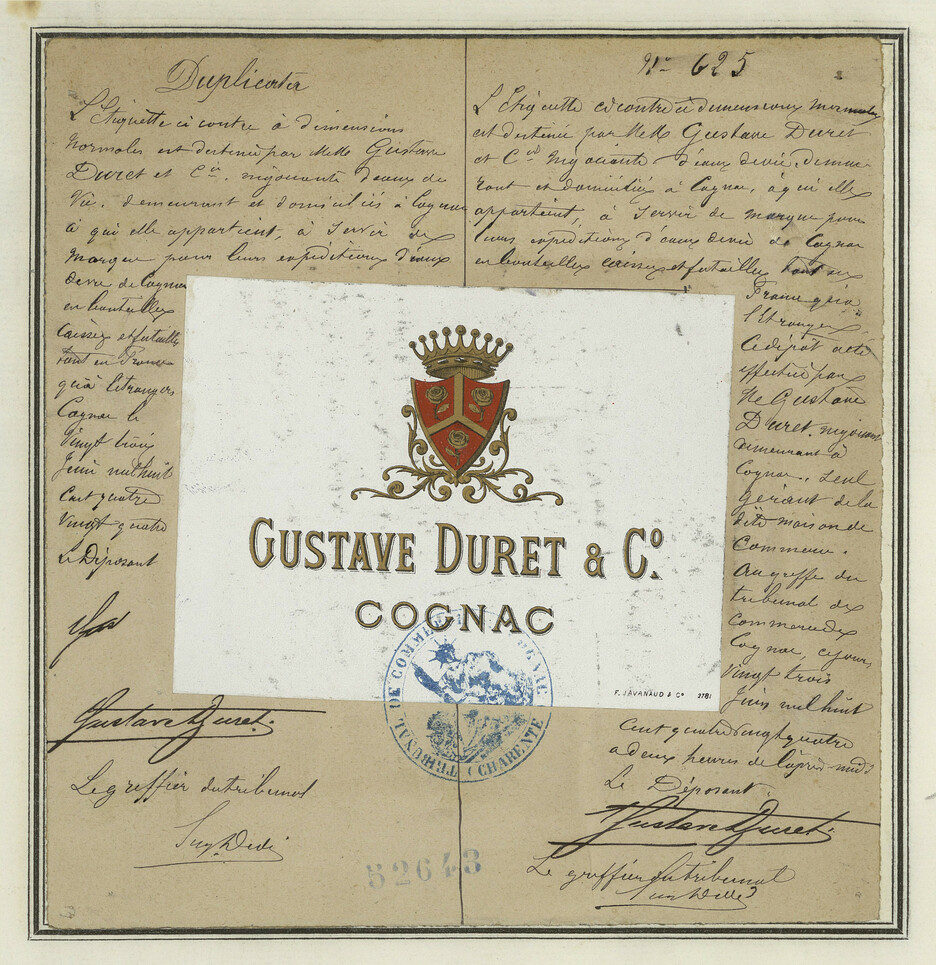 Duplicata
L'Etiquette ci contre à dimensions
Normales est destinée par MMrs Gustave
Duret et Cie. négociants d'eaux de
Vie. demeurant et domiciliés à Cognac
à qui elle appartient, à Servir de
Marque pour leurs expéditions d'eaux
devie de Cognac
en bouteilles
Caisses et futailles
tant en France
qu'à l'étranger
Cognac le
Vingt trois
Juin mil huit
Cent quatre
Vingt quatre
Le Déposant
Gustave Duret
Le greffier du tribunal
No 625
L'Etiquette ci contre à dimensions normales
est destinée par MMrs Gustave Duret
et Cie Négociants d'eaux devie, demeu-
rant et domiciliés à Cognac, à qui elle
appartient, à Servir de marque pour
leurs expéditions d'eaux devie de Cognac
en bouteilles caisses et futailles tant en
France qu'à
l'Etranger
Ce dépôt a été
effectué par
Mr Gustave
Duret, négociant
demeurant à
Cognac, Seul
Gérant de la
dite maison de
Commerce.
Au greffe du
tribunal de
Commerce de
Cognac, ce jour
Vingt trois
Juin mil huit
Cent quatre Vingt quatre
a deux heures de l'après-midi
Le Déposant
Gustave Duret
Le greffier du tribunal
GUSTAVE DURET & Co.
COGNAC
F. JAVANAUD & Co 2781
TRIBUNAL DE COMMERCE DE COGNAC
(CHARENTE)
52643